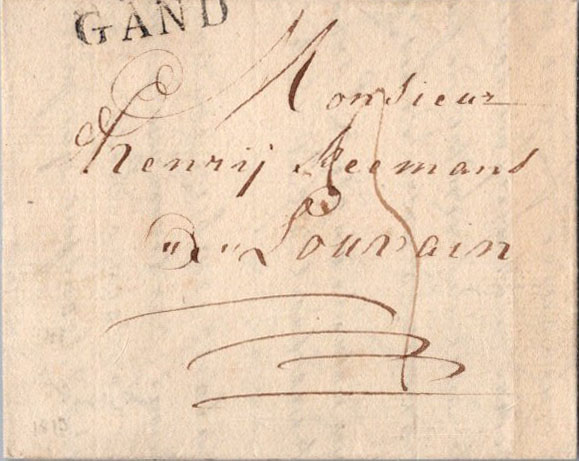 GAND
Monsieur
henrij Reemans
"à" Louvain